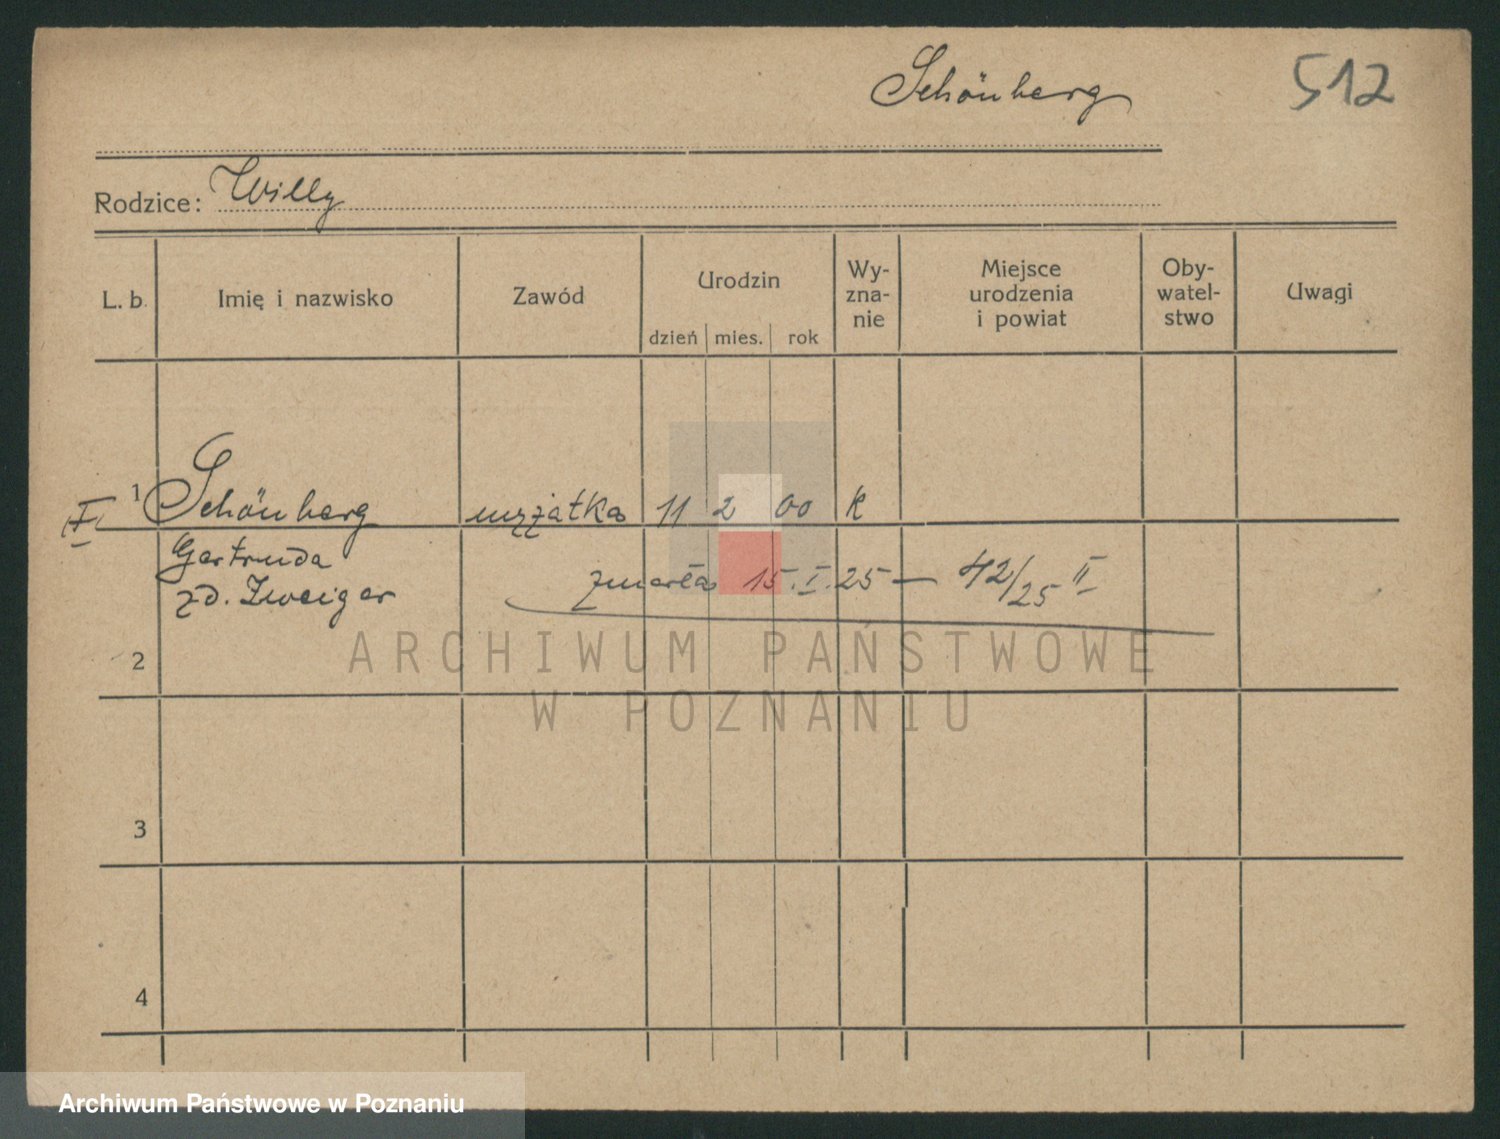 Schönberg
512
Rodzice: Willy
L. b. Imię i nazwisko Zawód Urodzin dzień mies. rok Wy-zna-nie Miejsce urodzenia i powiat Oby-watel-stwo Uwagi
I 1 Schönberg mężatka 11 2 00 k
Gertruda zmarła 15.I.25 — 42/25 II
zd. Zweiger
2
3
4
ARCHIWUM PAŃSTWOWE
W POZNANIU
Archiwum Państwowe w Poznaniu